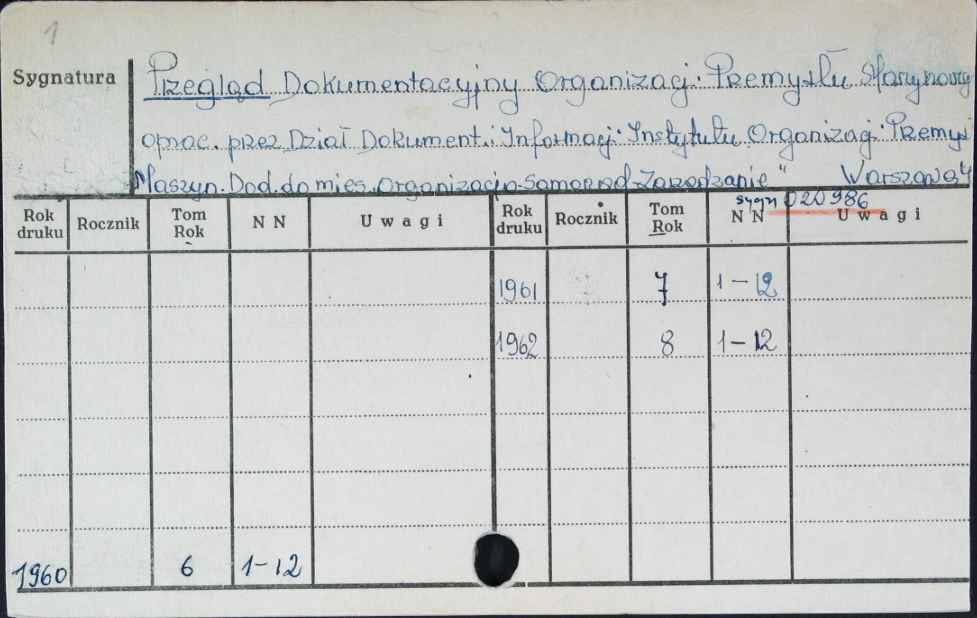 1
Sygnatura
Przegląd Dokumentacyjny Organizacji Przemysłu
oprac. przez Dział Dokument. i Informacji Instytutu Organizacji Przemysł
Maszyn. Dod. do mies. "Organizacja-Samorząd-Zarządzanie" Warszawa
sygn 020986
Rok druku Rocznik Tom Rok N N Uwagi Rok druku Rocznik Tom Rok N N Uwagi
1961 7 1-12
1962 8 1-12
1960 6 1-12